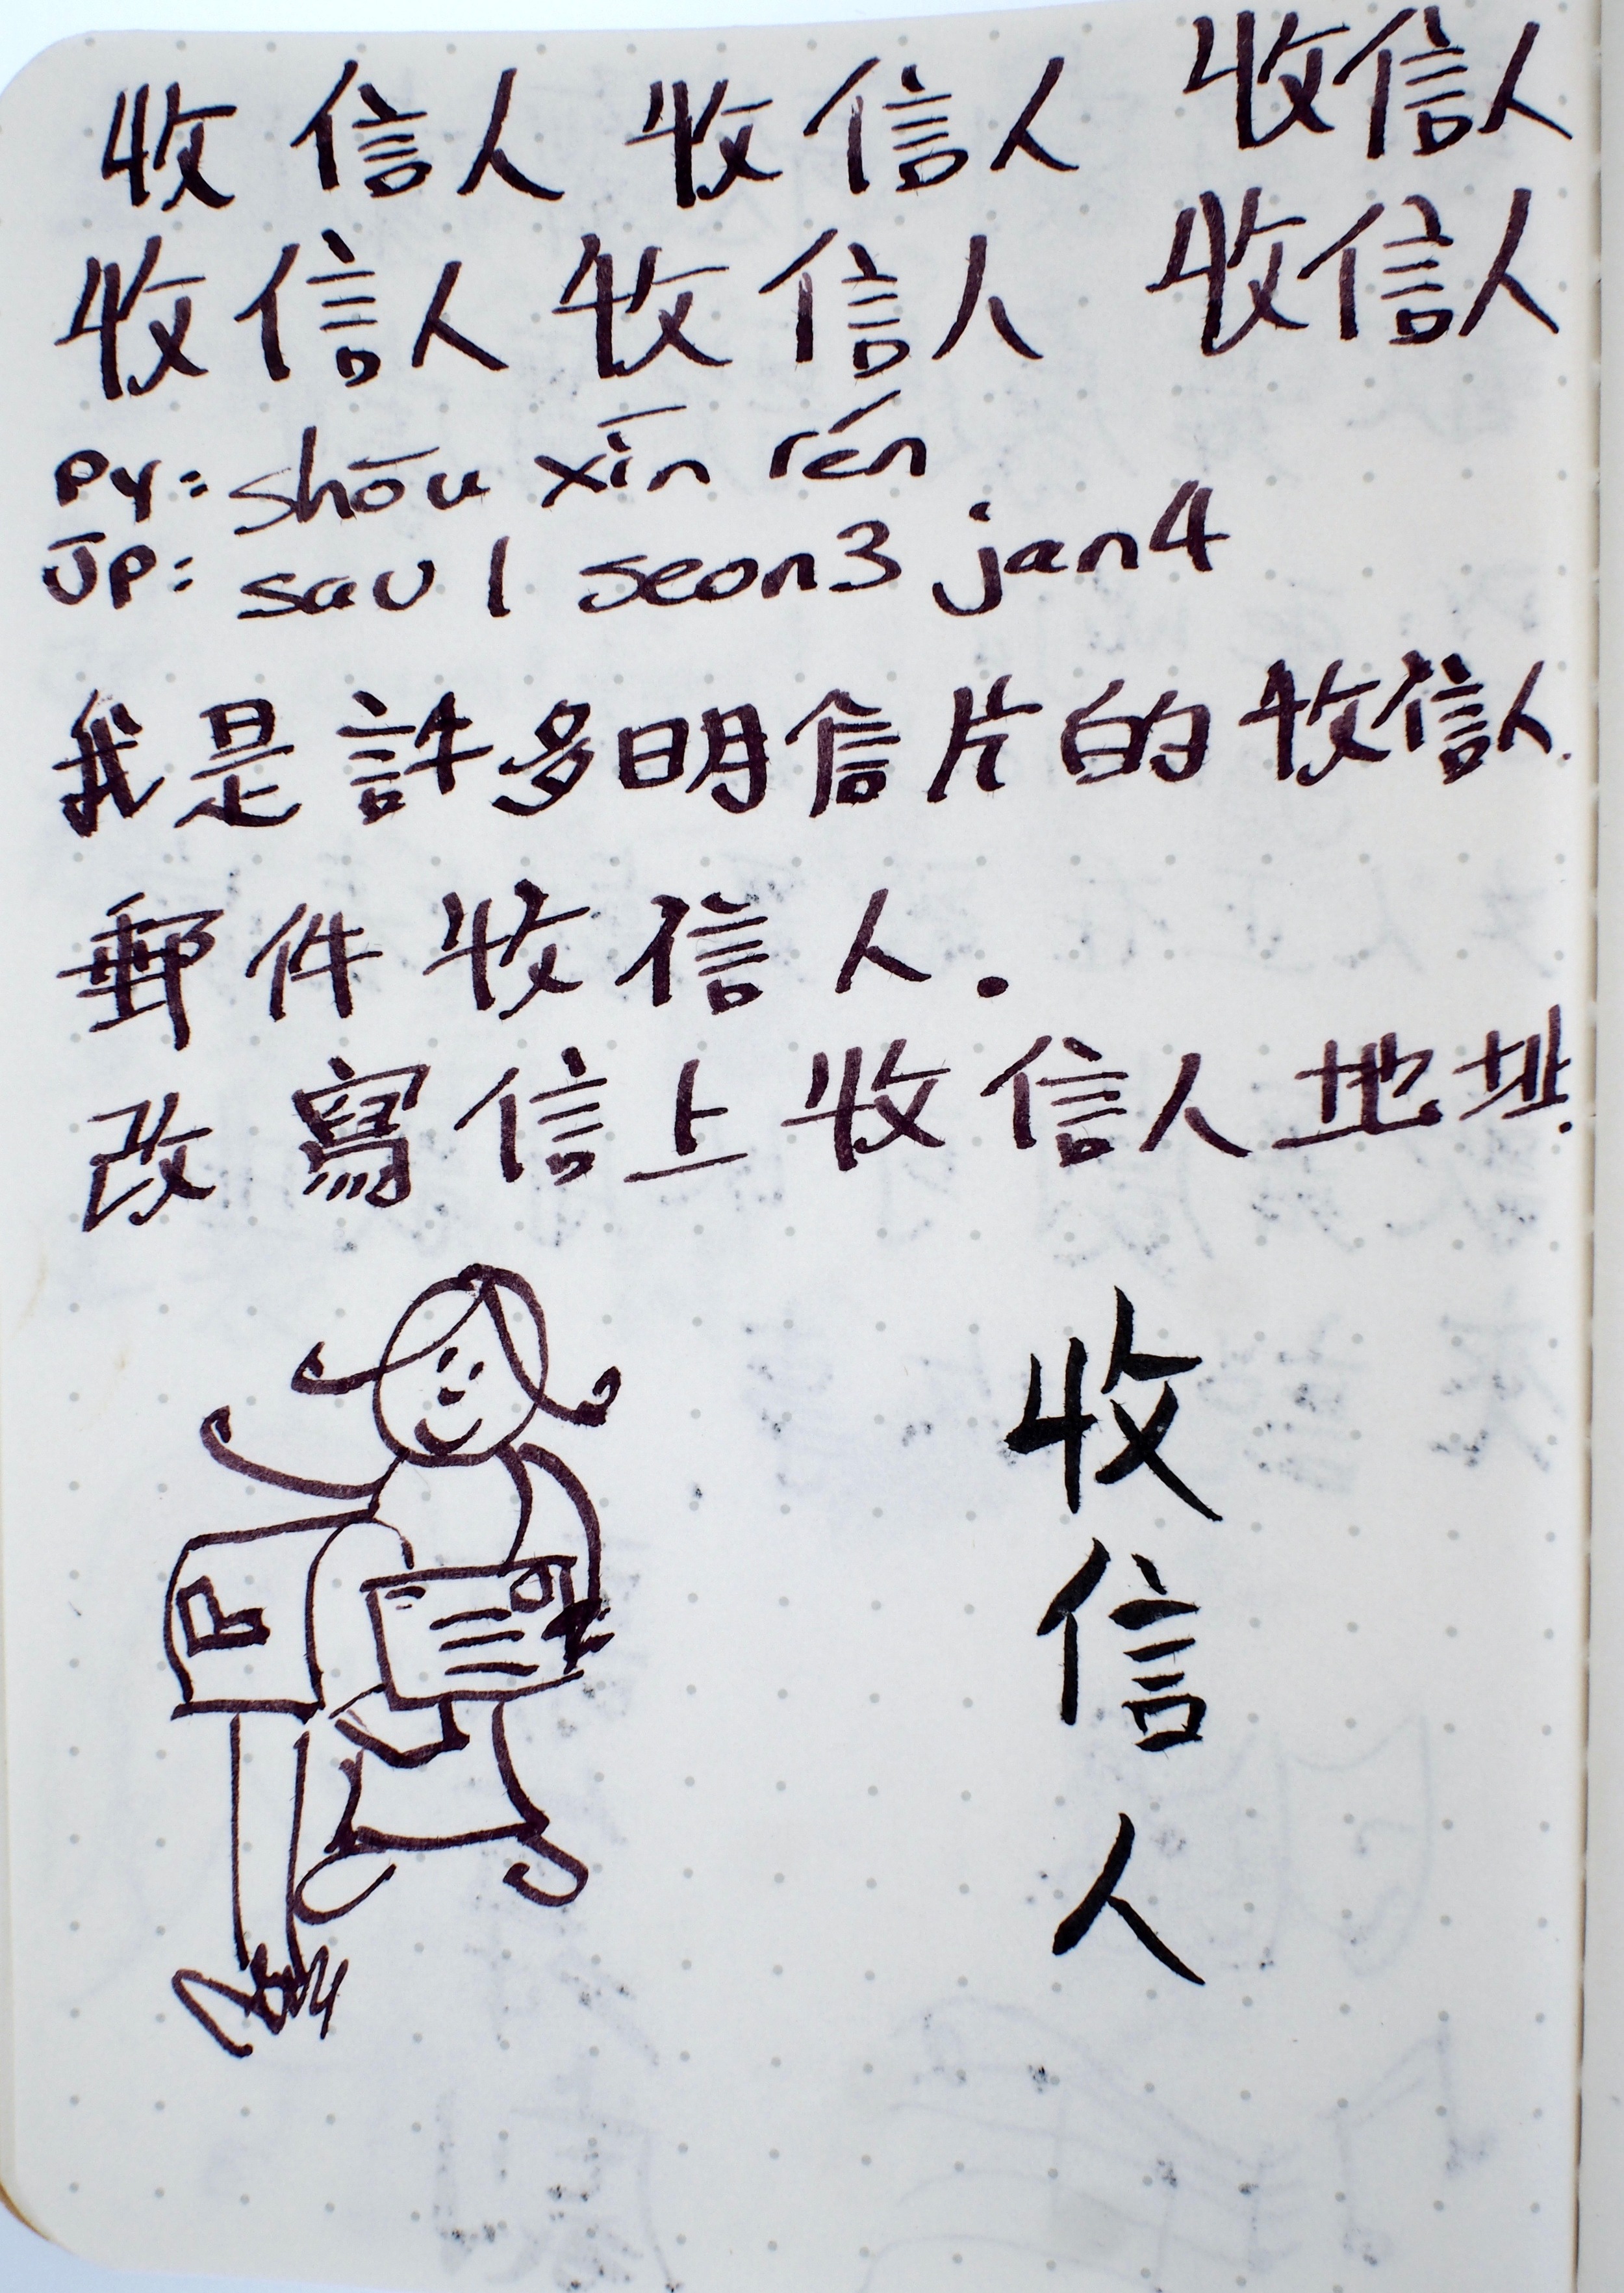 收信人 收信人 收信人
收信人 收信人 收信人
PY: shōu xīn rén
JP: sau1 seon3 jan4
我是許多明信片的收信人.
郵件收信人.
改寫信上收信人地址.
收
信
人